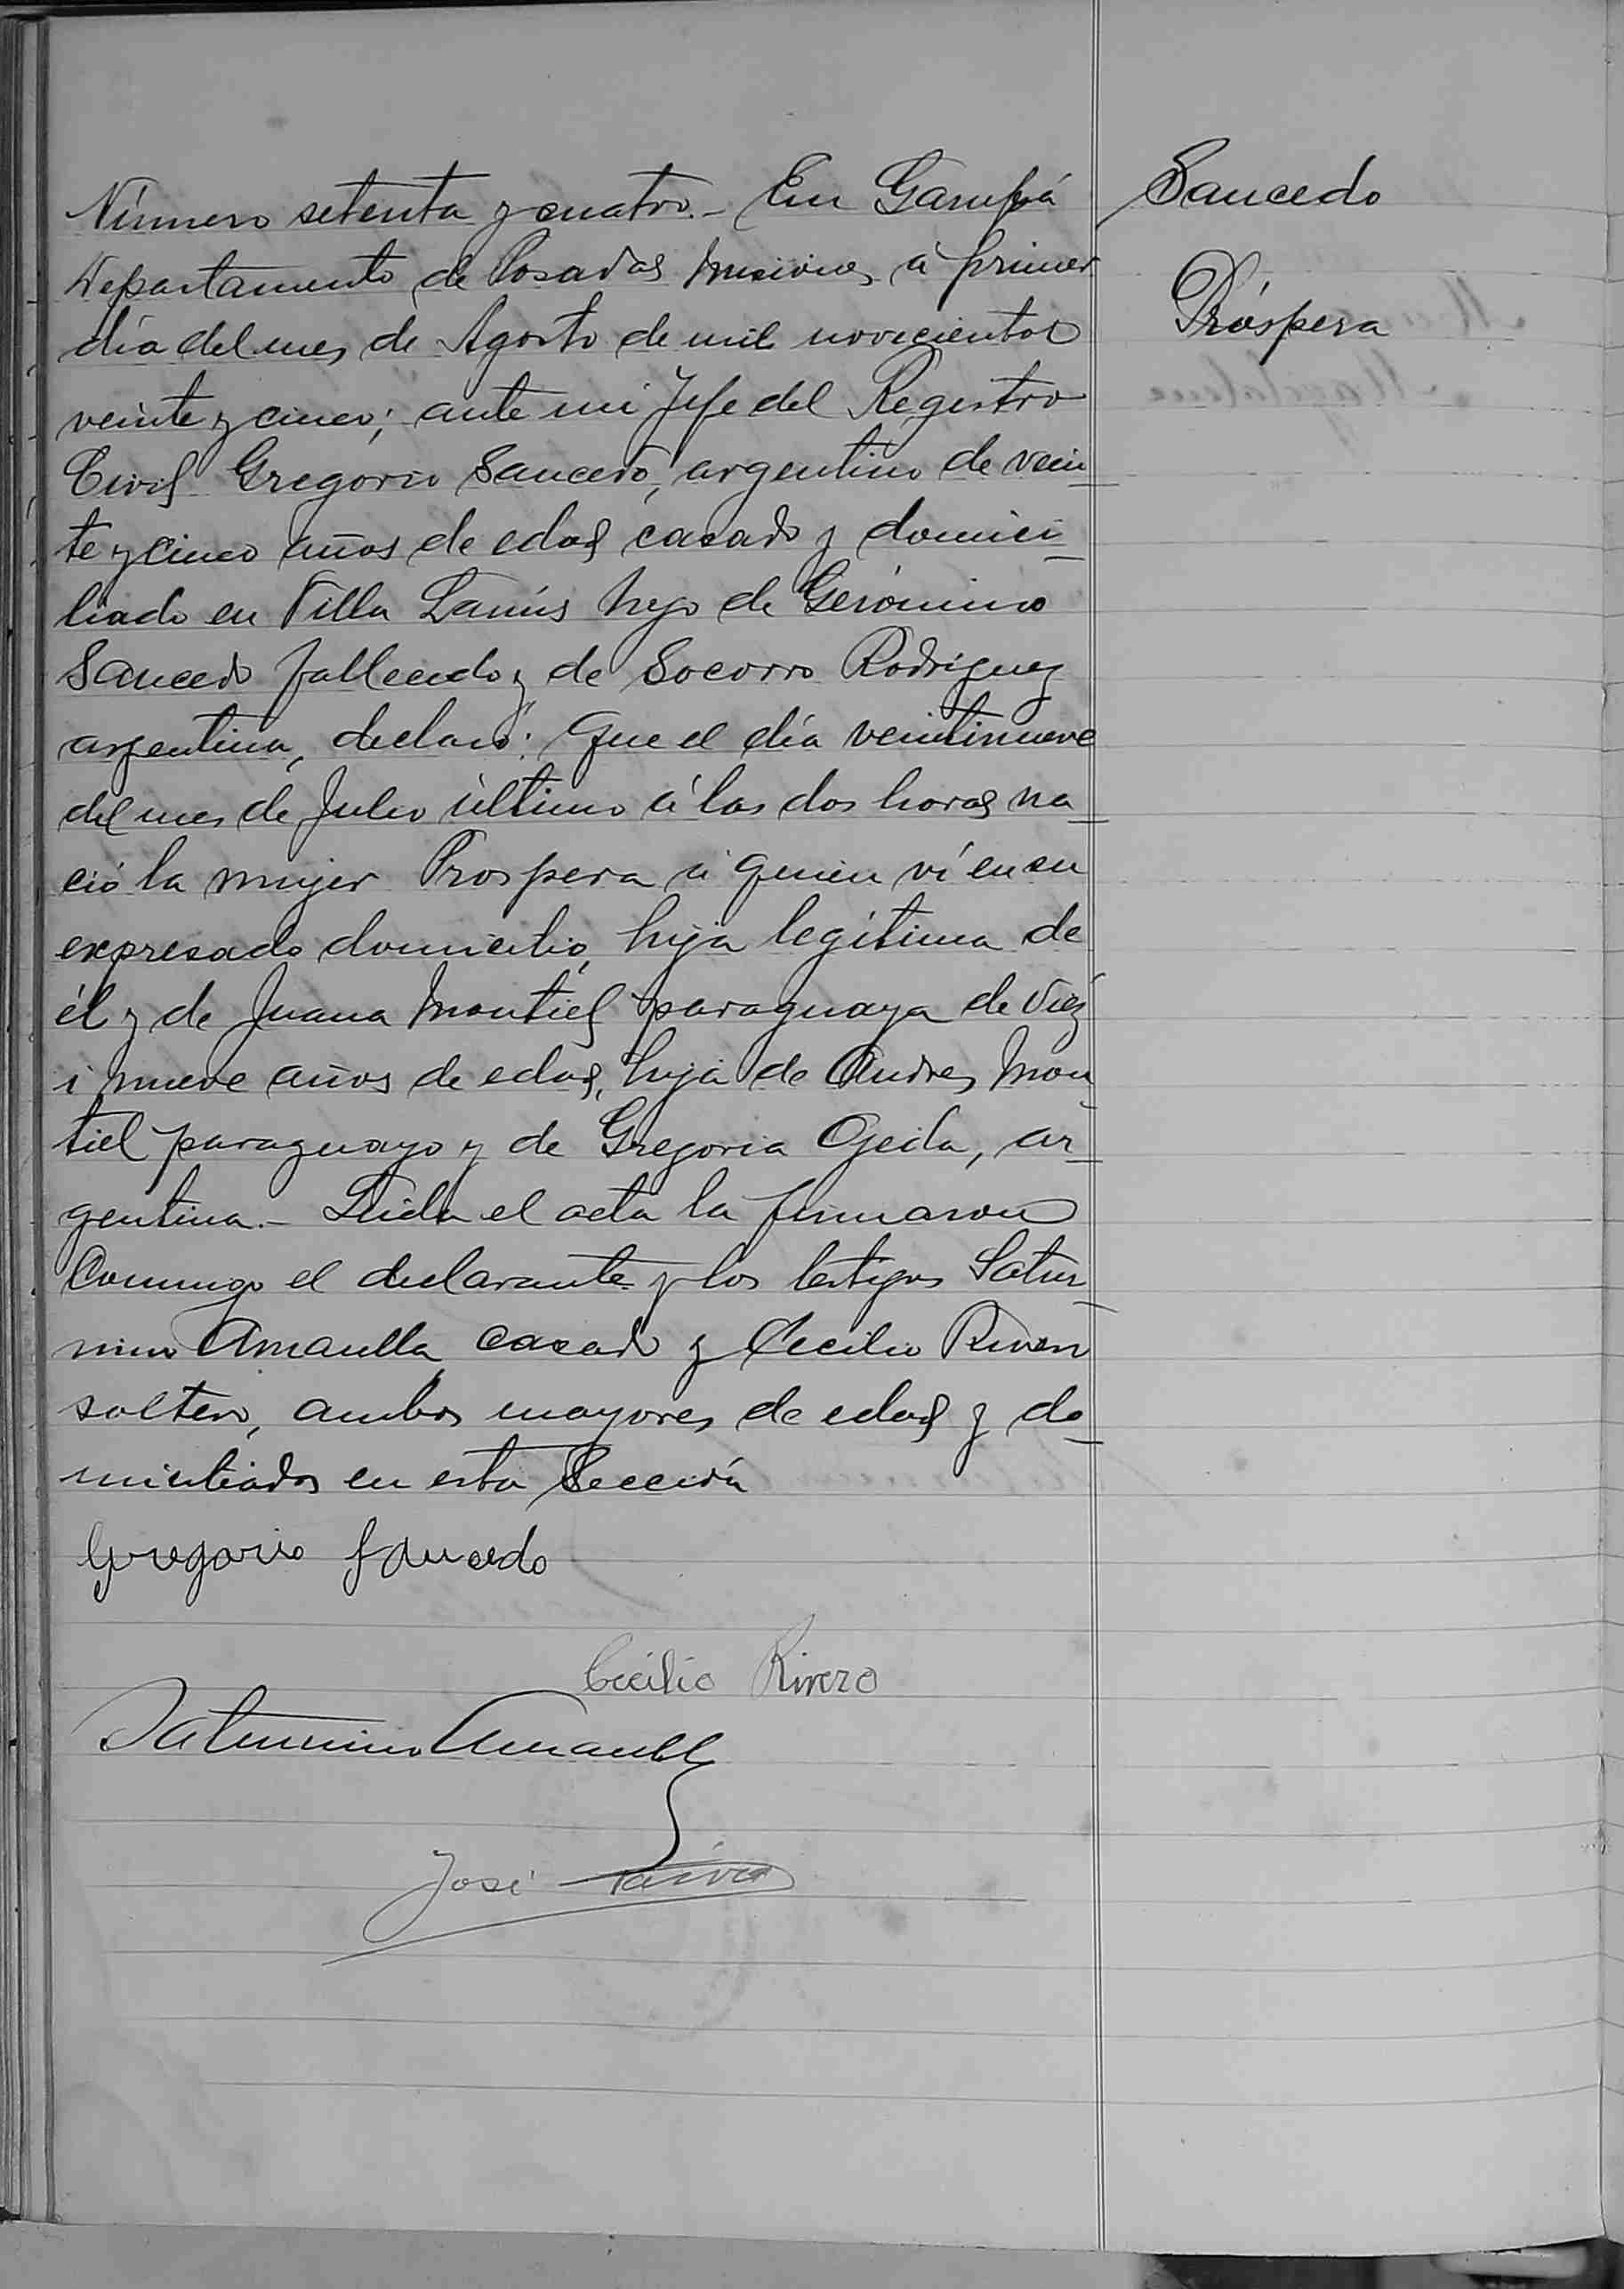 Saucedo
Próspera
Número setenta y cuatro.- En Garupá
Departamento de Posadas Misiones, a primer
día del mes de Agosto de mil novecientos
veinte y cinco; ante mi Jefe del Registro
Civil Gregorio Saucedo, argentino de vein
te y cinco años de edad casado y domici
liado en Villa Lanús hijo de Gerónimo
Saucedo fallecido y de Socorro Rodriguez
argentina, declaró: Que el día veintinueve
del mes de Julio último á las dos horas na
ció la mujer Prospera á quien ví en su
expresado domicilio, hija legítima de
él y de Juana Montiel paraguaya de diez
i nueve años de edad, hija de Andres Mon
tiel paraguayo y de Gregoria Ojeda, ar
gentina.- Leida el acta la firmaron
conmigo el declarante y los testigos Satur
nino Amarilla casado y Cecilio Rivero
soltero, ambos mayores de edad y do
miciliados en esta Sección
Gregorio Saucedo
Cecilio Rivero
Saturnino Amarilla
José